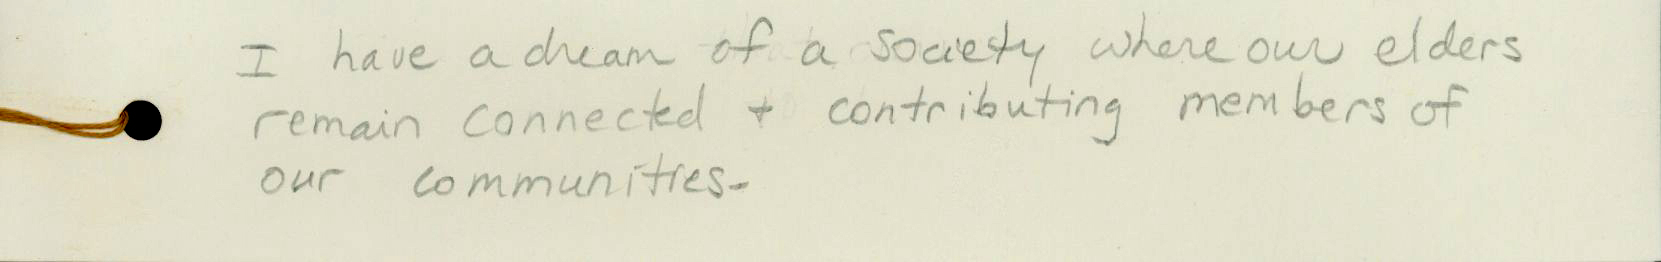 I have a dream of a society where our elders
remain connected + contributing members of
our communities-